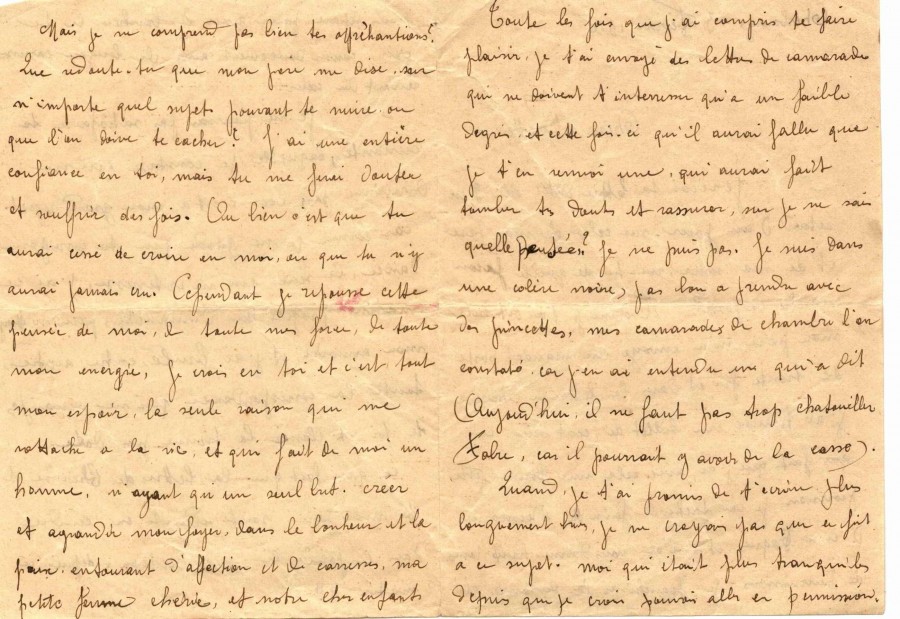 Mais je ne comprend pas bien tes appréhantions?
Que redoute-tu que mon pere me dise, sur
n'importe quel sujet pouvant te nuire, ou
que l'on doive te cacher? J'ai une entière
confiance en toi, mais tu me ferai douter
et souffrir des fois. Ou bien c'est que tu
aurai cessé de croire en moi, ou que tu n'y
aurai jamais cru. Cependant je repousse cette
pensée de moi, de toute mes force, de toute
mon energie, Je crois en toi et c'est tout
mon espoir, la seule raison qui me
rattache a la vie, et qui fait de moi un
homme, n'ayant qu'un seul but. créer
et agrandir mon foyer, dans le bonheur et la
paix. entourant d'affection et de caresses, ma
petite femme cherie, et notre cher enfants
Toute les fois que j'ai compris te faire
plaisir, je t'ai envoyé des lettres de camarade
qui ne doivent t'interresser qu'a un faible
degrés, et cette fois-ci qu'il aurai fallu que
je t'en renvoi une, qui aurai fait
tomber ts douts et rassurer, sur je ne sais
quelle pensées? Je ne puis pas. Je suis dans
une colère noire, pas bon a prendre avec
des pincettes, mes camarades de chambre l'on
constaté car j'en ai entendu un qu'a dit
(Aujourd'hui, il ne faut pas trop chatouiller
Fabre, car il pourrait y avoir de la casse).
Quand, je t'ai promis de t'écrire plus
longuement hier, je ne croyais pas que ce fut
a ce sujet. moi qui était plus tranquiles
depuis que je crois pouvoir aller en permission.